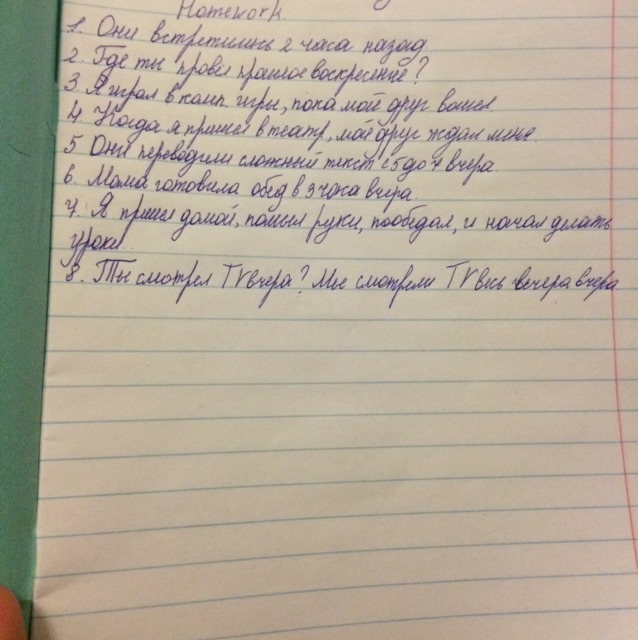 Homework
1. Они встретились 2 часа назад
2. Где ты провёл прошлое воскресение?
3. Я играл в комп. игры, пока мой друг вошел
4. Когда я пришел в театр, мой друг ждал меня.
5 Они переводили сложный текст с 5 до 7 вчера.
6. Мама готовила обед в 3 часа вчера.
7. Я пришел домой, помыл руки, пообедал, и начал делать
уроки.
8. Ты смотрел TV вчера? Мы смотрели TV весь вечера вчера